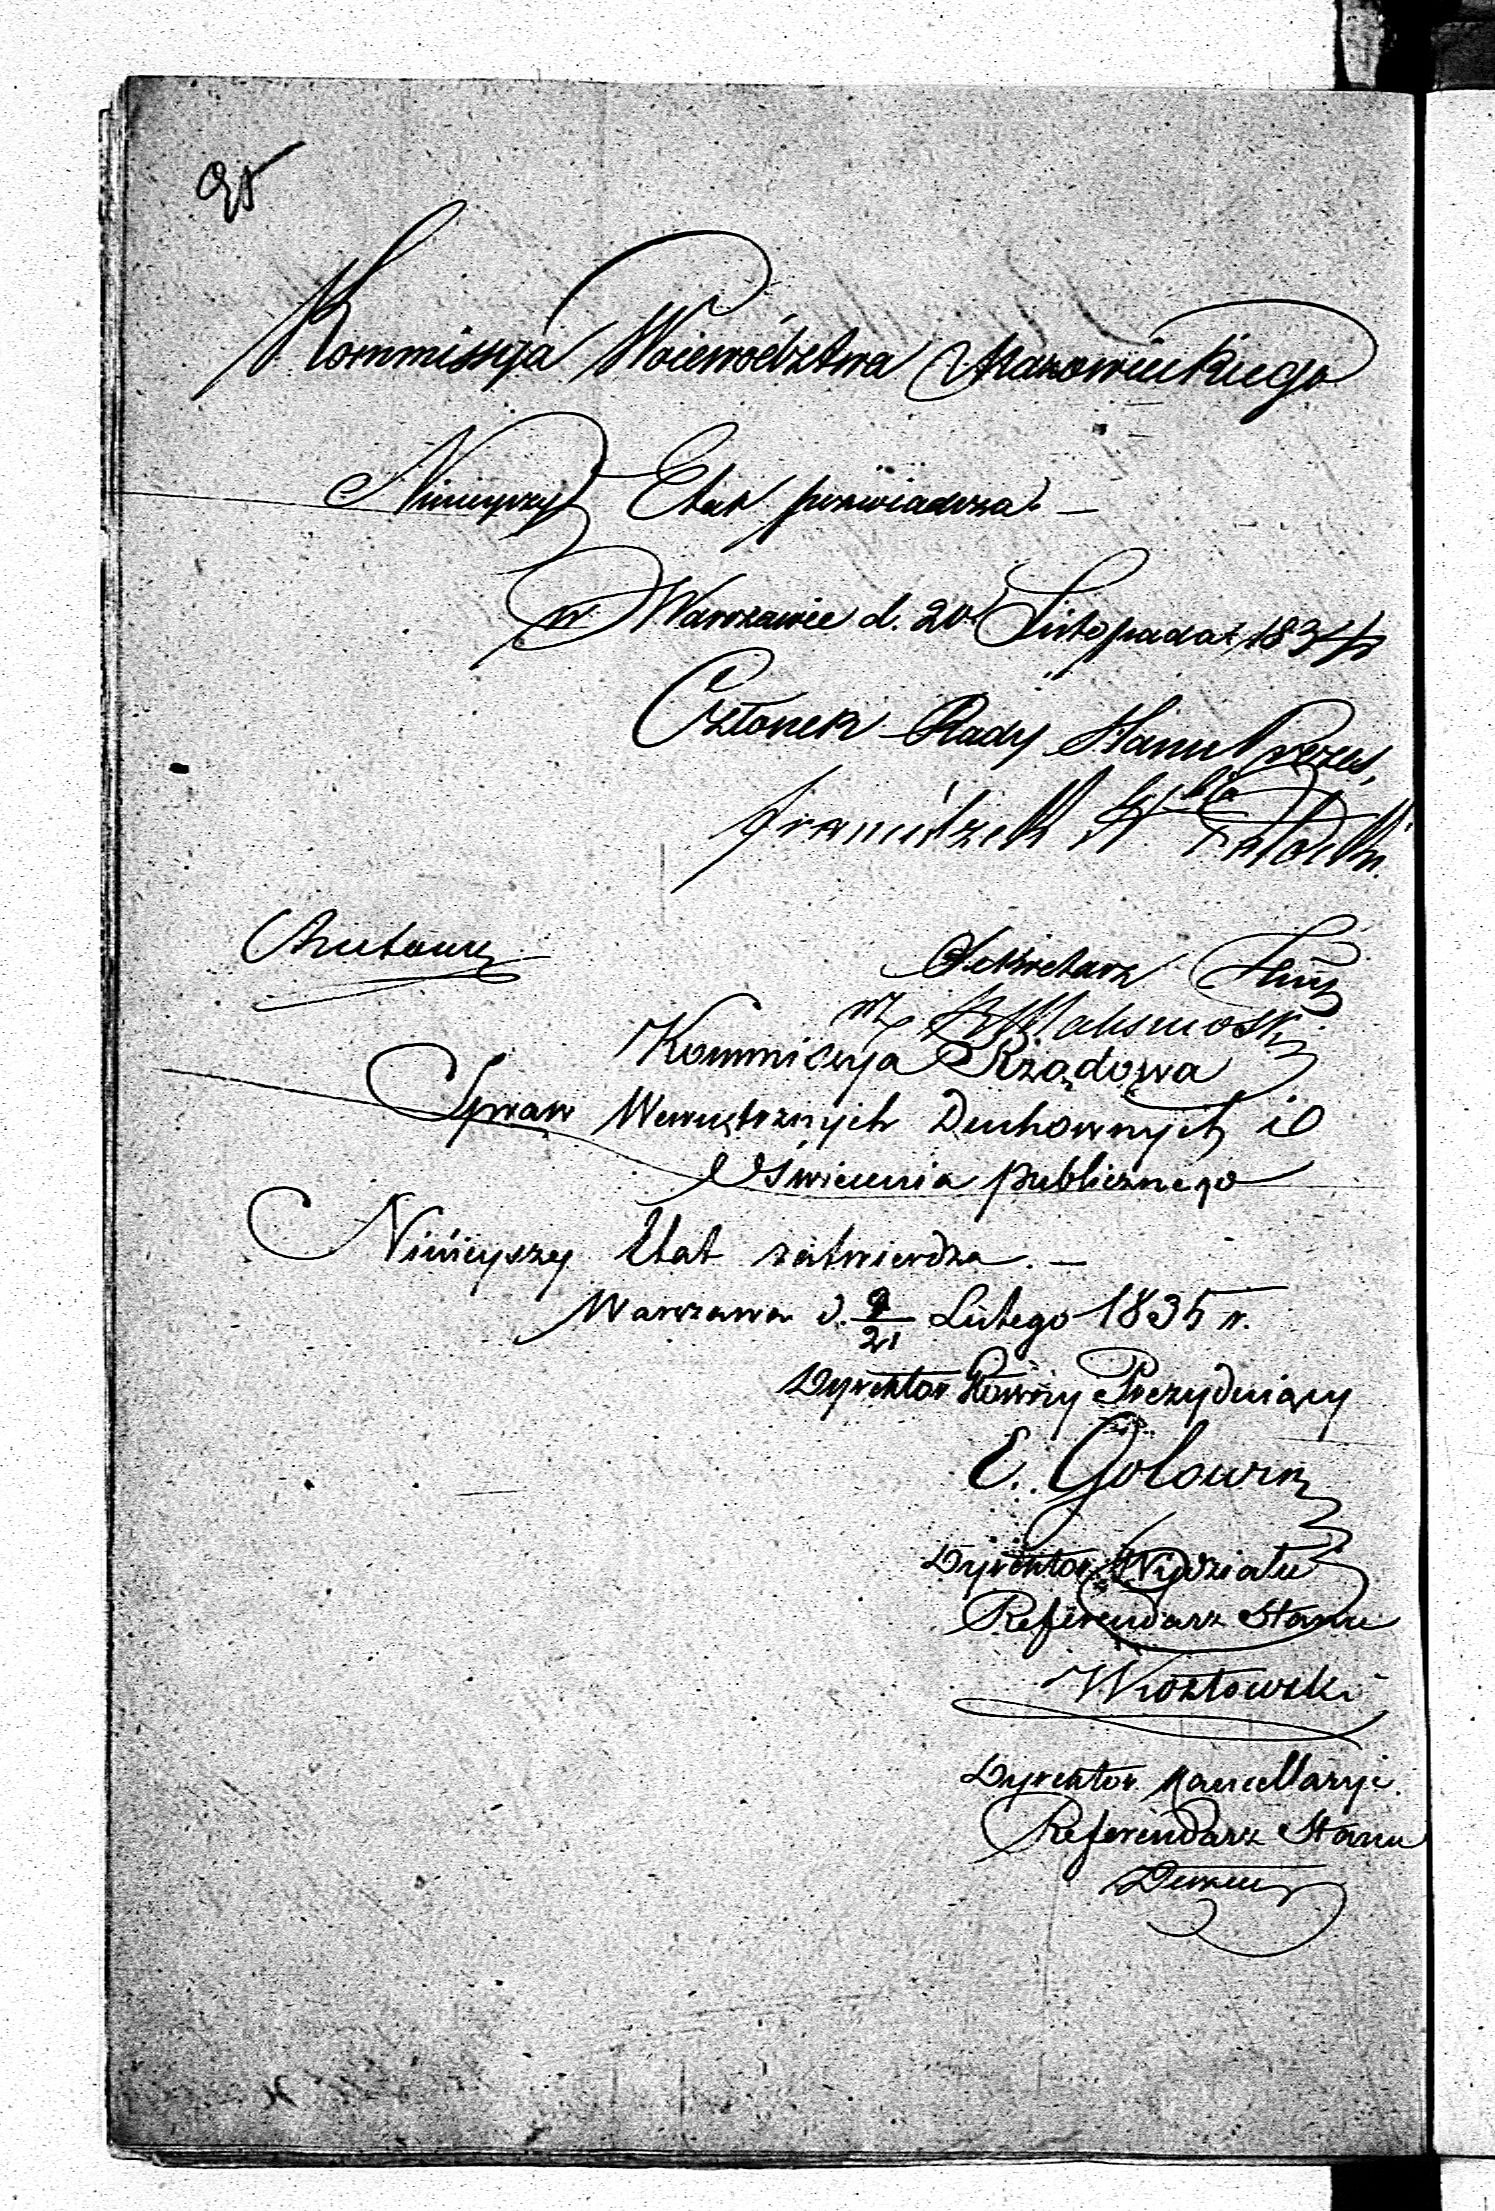 Kommissyja Woiewództwa Mazowieckiego
Ninieyszy Etat poświadcza. —
w Warszawie d. 20 Listopada 1834
Członek Rady Stanu Prezes,
Franciszek Potocki.
Sekretarz
Kommissyja Rządowa
Spraw Wewnętrznych Duchownych i
Oświecenia publicznego
Ninieyszy Etat zatwierdza. —
Warszawa d. 9/21 Lutego 1835 r.
Dyrektor Główny Prezyduiący
E. Golowin
Dyrektor Wydziału
Referendarz Stanu
Dyrektor Kancellaryi
Referendarz Stanu